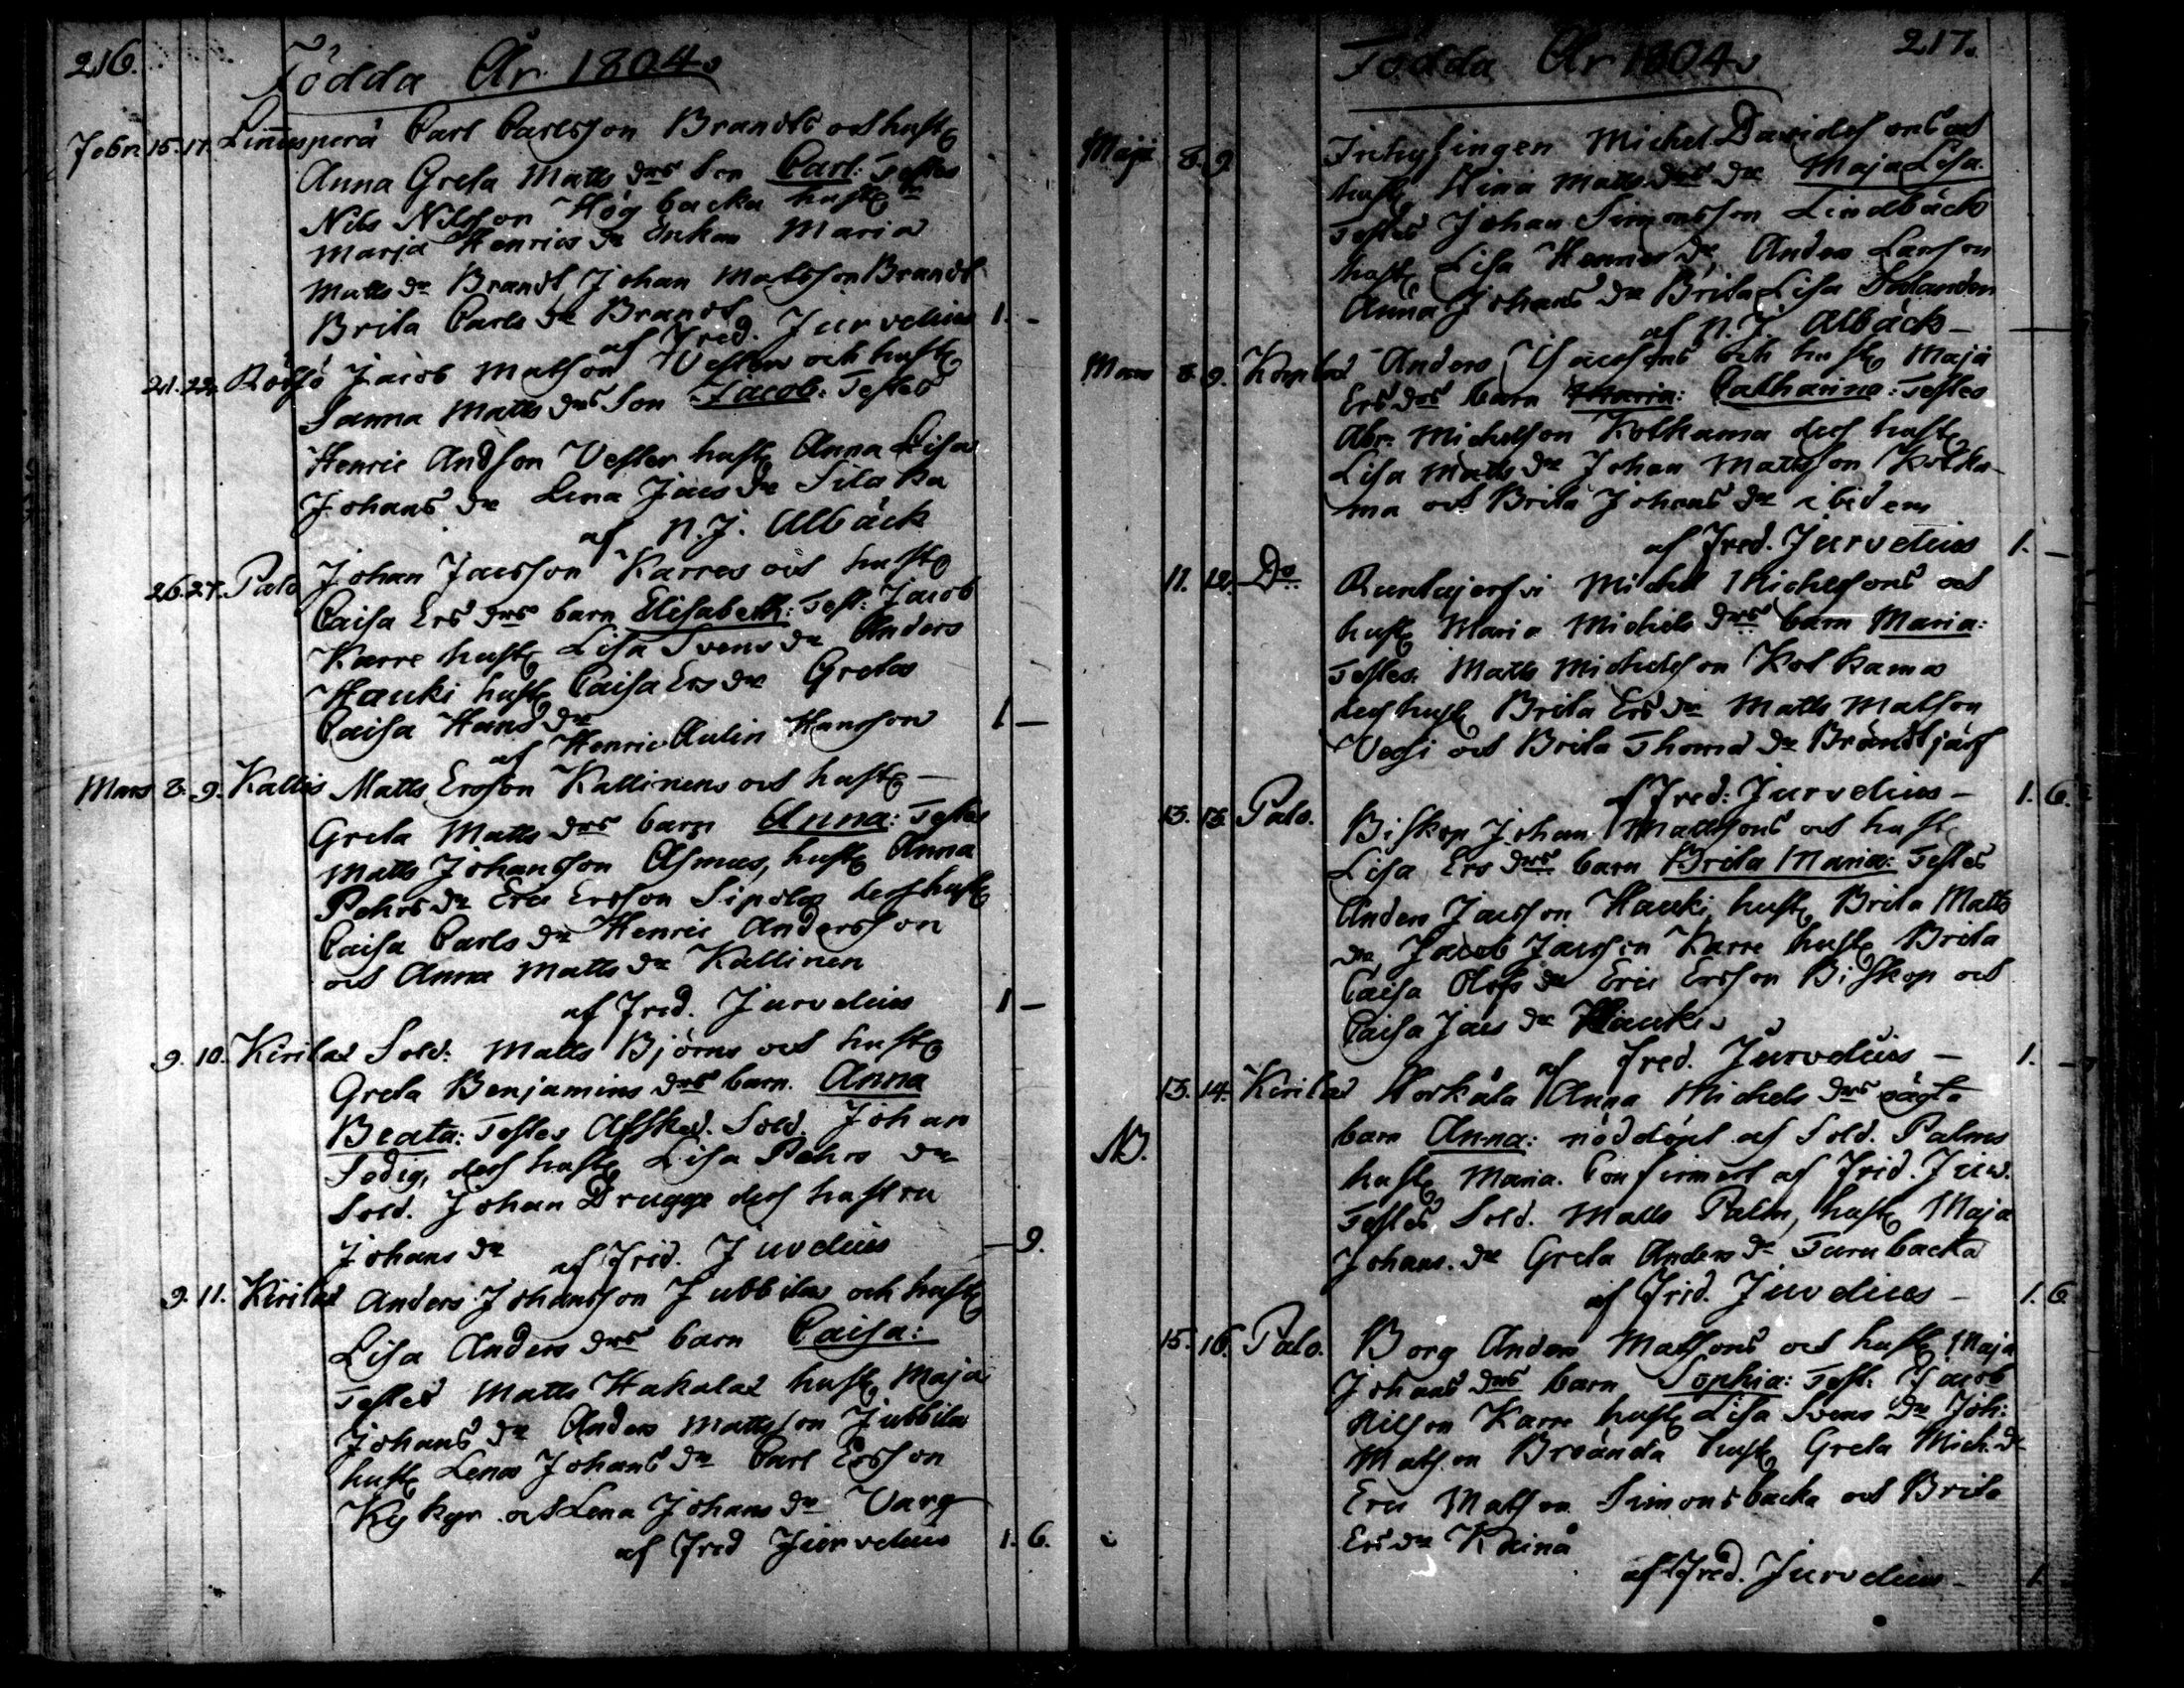 216.
Födda År 1804.
Febr. 15. 17. Linnusperä Carl Carlsson Brandts och hustr
Anna Greta Matts drs Son Carl: Testes
Nils Nilsson Högbacka hustr
Marja Henrics dr Enkan Maria
Matts dr Brandt Johan Matsson Brandt
Brita Carls dr Brandt
af Fred. Jurvelius 1. -
21. 22. Rödsö Jacob Matsson Vester och hustr
Sanna Matts drs Son Jacob: Testes
Henric Andsson Vester hustr Anna Lisa
Johans dr Lena Jacs dr Silaka
af N. J. Albäck
26. 27. Palo Johan Jacsson Karres och hustr
Caisa Ers drs barn Elisabeth: Test: Jacob
Karre hustr Lisa Svens dr Anders
Hauki hustr Caisa Ers dr Greta
Caisa Hans dr
af Henric Aulin Hansson 1 -
Mars 8. 9. Kallis Matts Ersson Kallinens och hustr -
Greta Matts drs barn Anna: Testes
Matts Johansson Asmus, hustr Anna
Pehrs dr Eric Ersson Sipola dess hustr
Caisa Carls dr Henric Andersson
och Anna Matts dr Kallinen
af Fred. Jurvelius 1 -
9. 10. Kirilax Sold: Matts Björns och hustr
Greta Benjamins drs barn. Anna
Beata: Testes Afsked. Sold. Johan
Sodig, dess hustr Lisa Pehrs dr
Sold. Johan Drugge dess hustru
Johans dr af Frid. Juvelius - 9.
9. 11. Kirilax Anders Johansson Jubbilas och hustr
Lisa Anders drs barn Caisa:
Testes Matts Hakalax hustr Maja
Johans dr Anders Mattsson Jubbila
hustr Lena Johans dr Carl Ersson
Kykyr och Lena Johans dr Varg
af Fred Jurvelius 1. 6.
217.
Födda År 1804.
Maji 8. 9. Michel Davidssons och
hustr Stina Matts drs dr Maja Lisa.
Testes Johan Simonsson Lindbäck
hustr Lisa Henrics dr Anders Larsson
Anna Johans dr Brita Lisa
af N. J. Albäck -
Mars 8. 9. Korplax Anders Isacssons och hustr Maja
Ers drs barn Maria: Catharina: Testes
Abr. Michelsson Kolkama dess hustr
Lisa Matts dr Johan Mattsson Kolka-
ma och Brita Johans dr ibidem
af Fred. Jurvelius 1. -
11. 12. Do Runtujerfvi Michel Michelssons och
hustr Maria Michels drs barn Maria:
Testes. Matts Michelsson Kolkama
dess hustr Brita Ers dr Matts Matsson
Vessi och Brita Thoms dr Brandtjärf
af Fred: Jurvelius - 1. 6.
13. 13. Palo. Biskop Johan Mattssons och hustr
Lisa Ers drs barn Brita Maria: Testes
Anders Jacsson Hauki, hustr Brita Matts
dr, Jacob Jacsson Karre hustr Brita
Caisa Olofs dr Eric Ersson Biskop och
Caisa Jacs dr Hauki.
af Fred. Jurvelius - 1. -
13. 14. Kirilax Horkala Anna Michels drs oägta
NB. barn Anna: nöddöpt af Sold. Palms
hustr Maria. Confirmert af Frid. Juv.
Testes Sold. Matts Palm, hustr Maja
Johans. dr Greta Anders dr Furubacka
af Frid. Juvelius - 1. 6
15. 16. Palo. Borg Anders Matssons och hustr Maja
Johans drs barn Sophia: Test. Jacob
Nilsson Karre hustr Lisa Svens dr Joh:
Matsson Broända hustr Greta Mich. dr
Eric Matsson Simonsbacka och Brita
Ers dr Kainå
af Fred. Jurvelius - 1